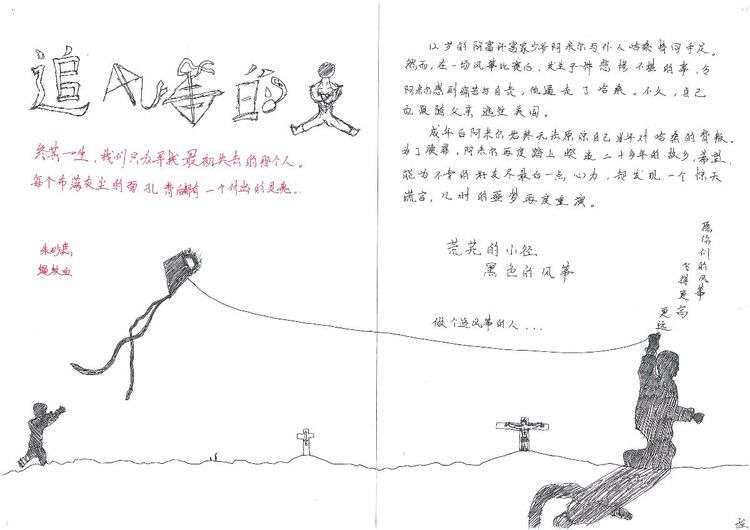 追风筝的人
终其一生，我们只为寻找最初失去的那个人。
每个布满灰尘的面孔背后都有一个
的灵魂。
12岁的阿富汗富家少爷阿米尔与仆人哈桑情同手足。
然而，在一场风筝比赛后，发生了一件悲惨不堪的事，令
阿米尔感到痛苦与自责，他逼走了哈桑。不久，自己
也跟随父亲逃往美国。
成年后阿米尔始终无法原谅自己当年对哈桑的背叛。
为了赎罪，阿米尔再度踏上暌违二十多年的故乡，希望
能为不幸的好友尽最后一点心力，却发现一个惊天
谎言，儿时的噩梦再度重演。
荒芜的小径
黑色的风筝
做个追风筝的人...
愿你们的风筝
飞得更高
更远